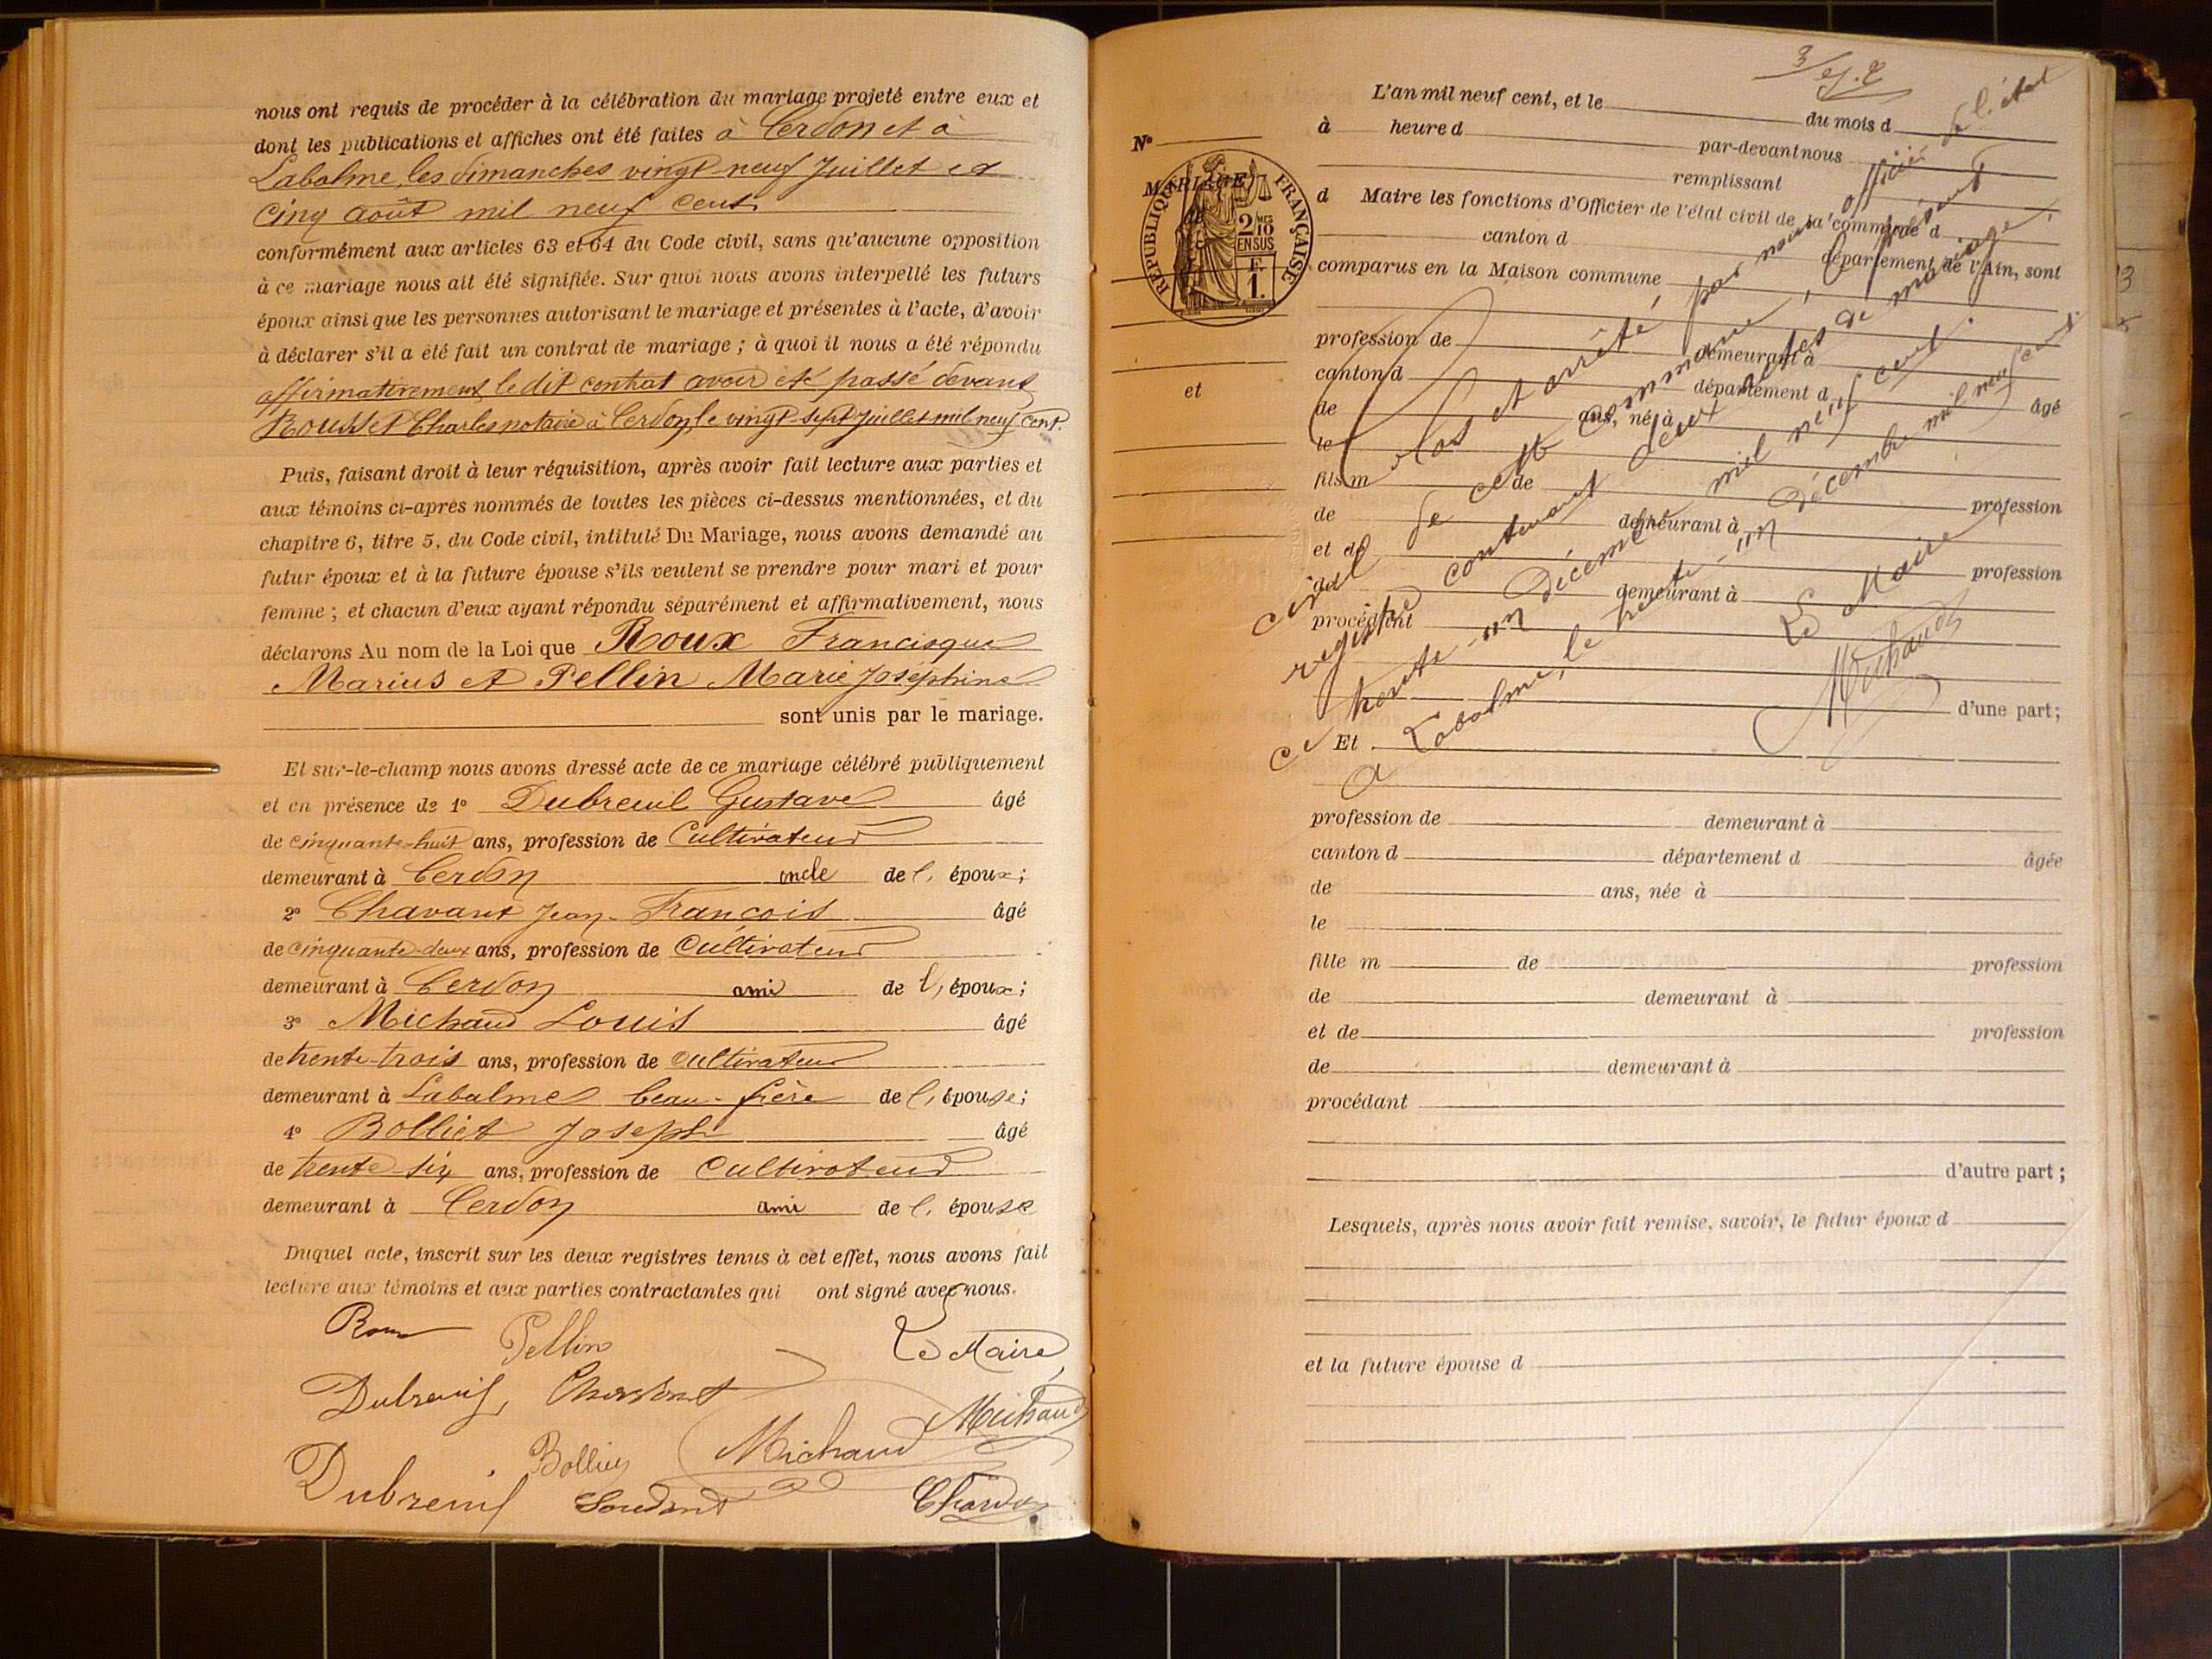 nous ont requis de procéder à la célébration du mariage projeté entre eux et
dont les publications et affiches ont été faites à Cerdon et à
Labalme, les dimanches vingt-neuf Juillet et
Cinq août mil neuf cent
conformément aux articles 63 et 64 du Code civil, sans qu'aucune opposition
à ce mariage nous ait été signifiée. Sur quoi nous avons interpellé les futurs
époux ainsi que les personnes autorisant le mariage et présentes à l'acte, d'avoir
à déclarer s'il a été fait un contrat de mariage ; à quoi il nous a été répondu
affirmativement, le dit contrat avoir été passé devant
Rousset Charles notaire à Cerdon, le vingt-sept Juillet mil neuf cent.
Puis, faisant droit à leur réquisition, après avoir fait lecture aux parties et
aux témoins ci-après nommés de toutes les pièces ci-dessus mentionnées, et du
chapitre 6, titre 5, du Code civil, intitulé Du Mariage, nous avons demandé au
futur époux et à la future épouse s'ils veulent se prendre pour mari et pour
femme ; et chacun d'eux ayant répondu séparément et affirmativement, nous
déclarons Au nom de la Loi que Roux Francisque
Marius et Pellin Marie Joséphine
sont unis par le mariage.
Et sur-le-champ nous avons dressé acte de ce mariage célébré publiquement
et en présence de 1° Dubreuil Gustave âgé
de cinquante-huit ans, profession de Cultivateur
demeurant à Cerdon oncle de l' époux ;
2° Chavant Jean-François âgé
de cinquante-deux ans, profession de Cultivateur
demeurant à Cerdon ami de l' époux ;
3° Michaud Louis âgé
de trente-trois ans, profession de cultivateur
demeurant à Labalme beau-frère de l' épouse ;
4° Bolliet Joseph âgé
de trente-six ans, profession de Cultivateur
demeurant à Cerdon ami de l' épouse
Duquel acte, inscrit sur les deux registres tenus à cet effet, nous avons fait
lecture aux témoins et aux parties contractantes qui ont signé avec nous.
Roux Pellin Le Maire,
Dubreuil, Chavant
Michaud
Bolliet Michaud
Dubreuil
L'an mil neuf cent, et le du mois d
à heure d par-devant nous
N°
remplissant
MARIAGE
RÉPUBLIQUE FRANÇAISE
2/10 MES
EN SUS
F.
1.
d Maire les fonctions d'Officier de l'état civil de la commune d
canton d département de l'Ain, sont
comparus en la Maison commune
profession de demeurant à
canton d département d âgé
et
de ans, né à
le
fils m de profession
de demeurant à
et de profession
de demeurant à
procédant
d'une part ;
Clos et arrêté, par nous officier de l'état
civil de cette commune, le présent
registre contenant deux actes de mariage,
ce trente-un Décembre mil neuf cent.
A Labalme, le trente-un Décembre mil neuf cent.
Le Maire,
Michaud
Et
profession de demeurant à
canton d département d âgée
de ans, née à
le
fille m de profession
de demeurant à
et de profession
de demeurant à
procédant
d'autre part ;
Lesquels, après nous avoir fait remise, savoir, le futur époux d
et la future épouse d